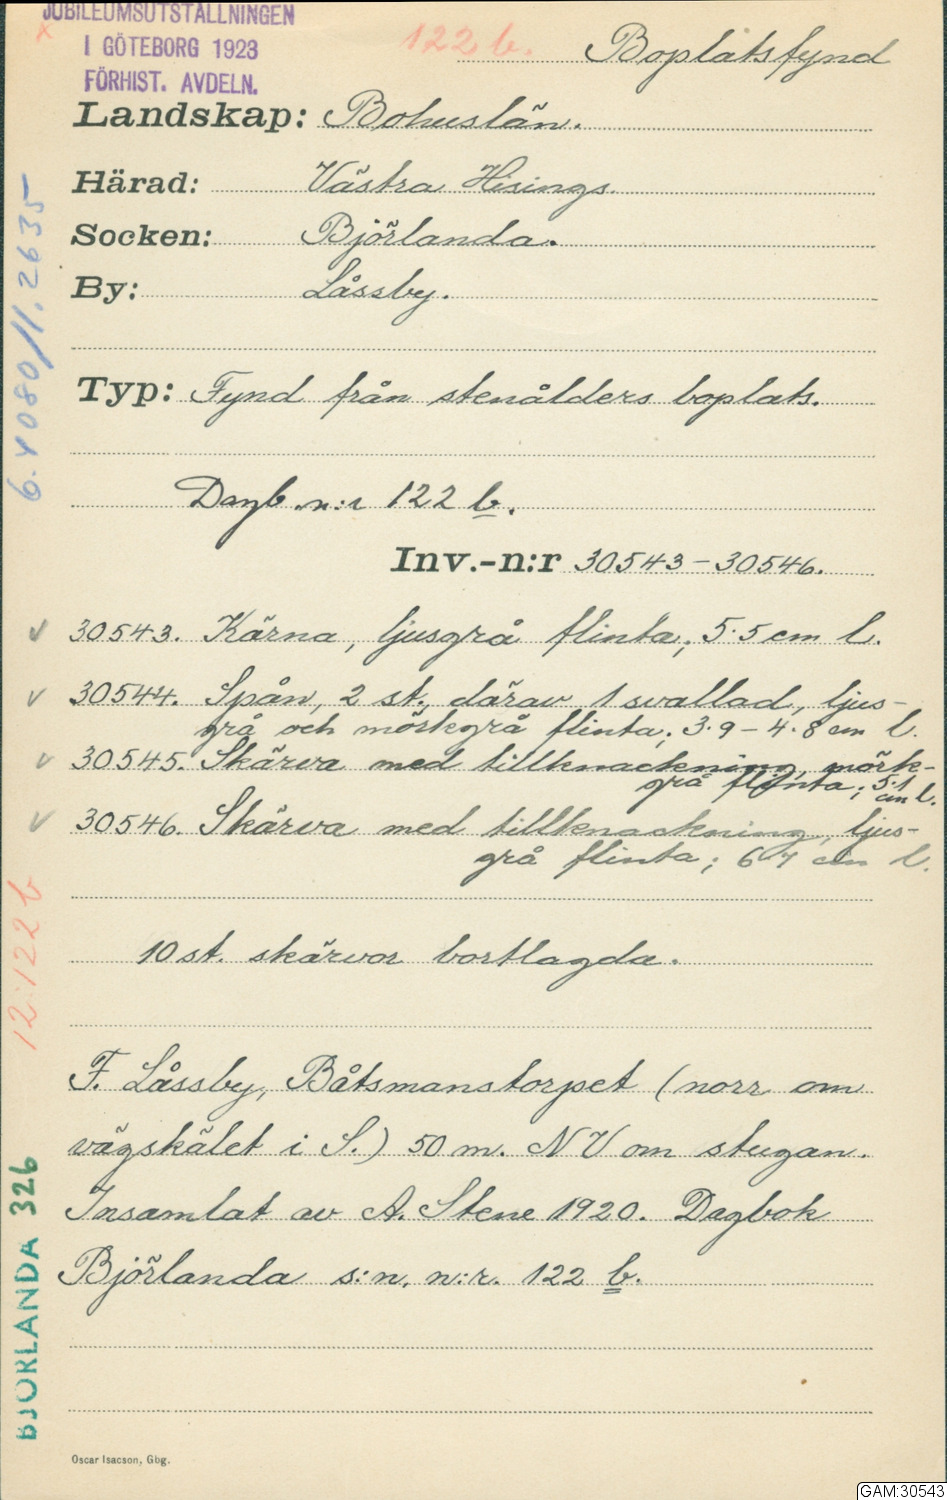 JUBILEUMSUTSTÄLLNINGEN
I GÖTEBORG 1923
FÖRHIST. AVDELN.
x
122 b.
Boplatsfynd
Landskap: Bohuslän.
Härad: Västra Hisings.
Socken: Björlanda.
By: Låssby.
Typ: Fynd från stenålders boplats.
Dagb. n:r 122 b.
Inv.-n:r 30543-30546.
30543. Kärna, ljusgrå flinta; 5.5 cm l.
30544. Spån, 2 st., därav 1 svallad, ljus-
grå och mörkgrå flinta; 3.9-4.8 cm l.
30545. Skärva med tillknackning, mörk-
grå flinta; 5.1
cm l.
30546. Skärva med tillknackning, ljus-
grå flinta; 6.7 cm l.
10 st. skärvor bortlagda.
F. Låssby, Båtsmanstorpet (norr om
vägskälet i S.) 50 m. NV om stugan.
Insamlat av A. Stene 1920. Dagbok
Björlanda s:n, n:r. 122 b.
6.4080/1.2635
12:122 b
BJÖRLANDA 326
Oscar Isacson, Gbg.
GAM:30543